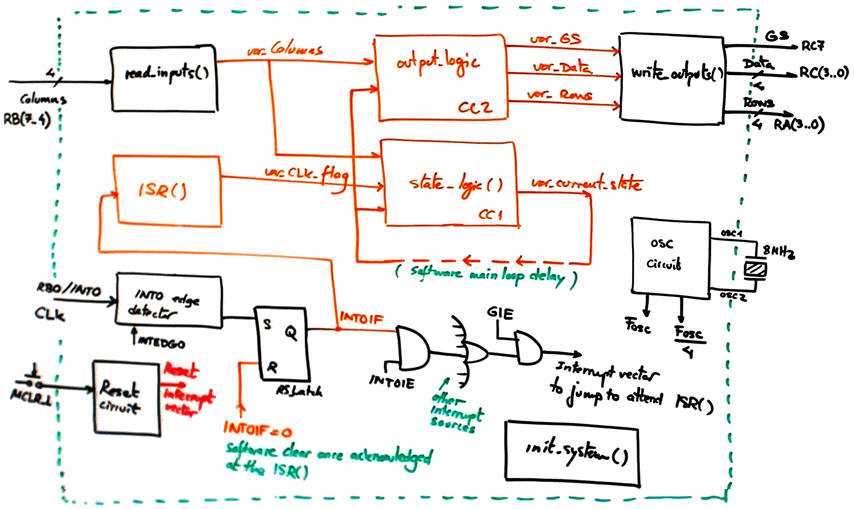 4
Columns
RB(7..4)
read_inputs()
var_Columns
output_logic
CC2
var_GS
var_Data
var_Rows
write_outputs()
GS
RC7
Data
4
RC(3..0)
Rows
4
RA(3..0)
ISR()
var_CLK_flag
state_logic()
CC1
var_current_state
( Software main loop delay )
OSC
circuit
OSC1
OSC2
8MHz
Fosc
Fosc
4
RB0/INT0
CLK
INT0 edge
detector
INTEDG0
S
Q
R
RS_latch
INT0IF
INT0IE
GIE
Interrupt vector
to jump to attend ISR()
other
interrupt
sources
MCLR_L
Reset
circuit
Reset
Interrupt
vector
INT0IF=0
Software clear once acknowledged
at the ISR()
init_system()